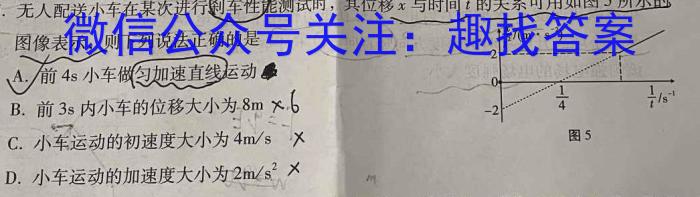 无人配送小车在某次进行刹车性能测试时，其位移 x 与时间 t 的关系可用如图 5 所示的
图像表示，则下列说法正确的是
微信公众号关注：趣找答案
A. 前 4s 小车做匀加速直线运动
B. 前 3s 内小车的位移大小为 8m ×6
C. 小车运动的初速度大小为 4m/s ×
D. 小车运动的加速度大小为 2m/s² ×
2
0
-2
1/4
1/t /s⁻¹
图 5